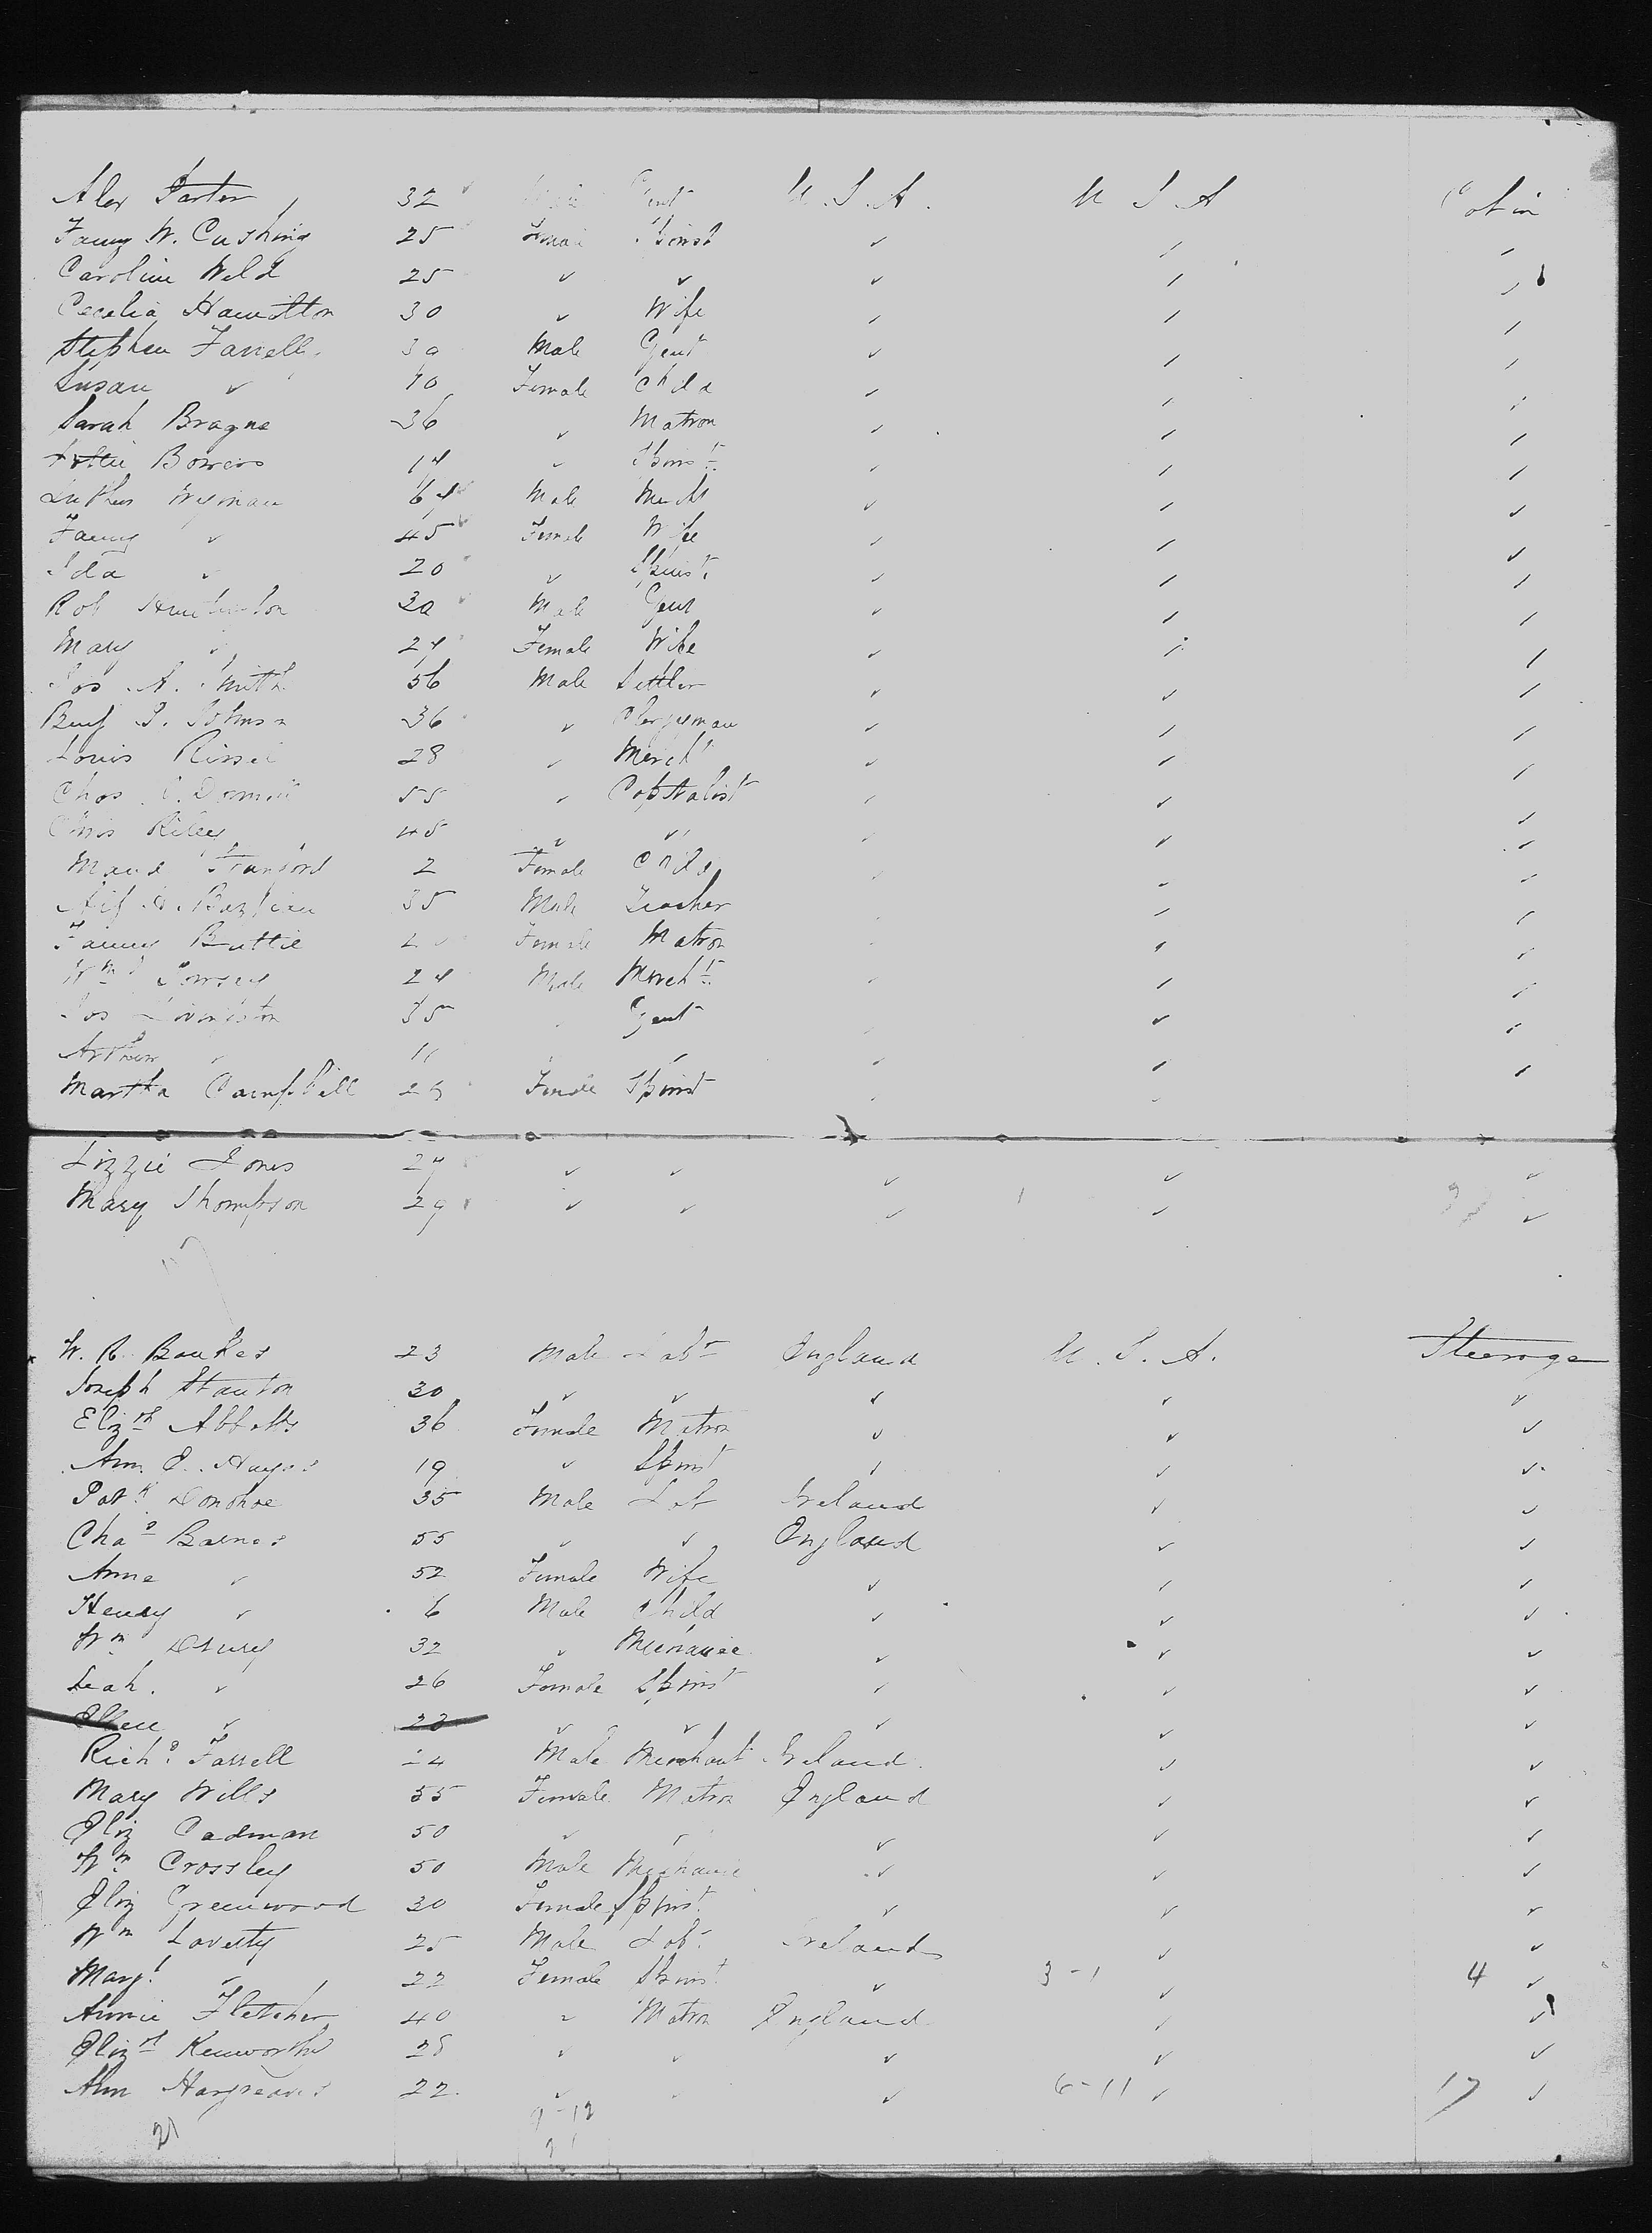 Alex Porter 32 Male Gent U.S.A. U S A Cabin
Fanny W. Cushing 25 Female Spinst ✓ ✓ ✓
Caroline Weld 25 ✓ ✓ ✓ ✓ ✓
Cecelia Hamilton 30 ✓ Wife ✓ ✓ ✓
Stephen Farrelly 30 Male Gent ✓ ✓ ✓
Susan ✓ 10 Female Child ✓ ✓ ✓
Sarah Bragne 36 ✓ Matron ✓ ✓ ✓
Lottie Bowers 14 ✓ Spinst ✓ ✓ ✓
Luther Wyman 64 Male Mercht ✓ ✓ ✓
Fanny ✓ 45 Female Wife ✓ ✓ ✓
Ida ✓ 20 ✓ Spinst. ✓ ✓ ✓
Rob 30 Male Gent ✓ ✓ ✓
Mary ✓ 24 Female Wife ✓ ✓ ✓
Jos. A. Smith 56 Male Settler ✓ ✓ ✓
Benj Johnson 36 ✓ Clergyman ✓ ✓ ✓
Louis 28 ✓ Mercht ✓ ✓ ✓
Chas 55 ✓ Capitalist ✓ ✓ ✓
Riley 45 ✓ ✓ ✓ ✓ ✓
Maud 2 Female Child ✓ ✓ ✓
35 Male Teacher ✓ ✓ ✓
Fanny Buttie Female Matron ✓ ✓ ✓
Wm 24 Male Mercht ✓ ✓ ✓
Jos Livingston 35 Gent ✓ ✓ ✓
Arthur ✓ 11 ✓ ✓ ✓ ✓ ✓
Martha Campbell 25 Female Spinst ✓ ✓
Lizzie Jones 27 ✓ ✓ ✓ ✓ ✓
Mary Thompson 29 ✓ ✓ ✓ ✓ ✓
W. R. Bankes 23 Male Labr England U.S.A. Steerage
Joseph Stanton 30 ✓ ✓ ✓ ✓ ✓
Elizth Abbotts 36 Female Matron ✓ ✓ ✓
Ann E. Hayes 19 ✓ Spinst ✓ ✓ ✓
Patk Donohoe 35 Male Lab Ireland ✓ ✓
Chas Barnes 55 ✓ ✓ England ✓ ✓
Anne ✓ 52 Female Wife ✓ ✓ ✓
Henry ✓ 6 Male Child ✓ ✓ ✓
Wm Drury 32 ✓ Mechanic ✓ ✓ ✓
Leah ✓ 26 Female Spinst ✓ ✓ ✓
Ellen ✓ 23 ✓ ✓ ✓ ✓ ✓
Richd Farrell 24 Male Merchant Ireland ✓ ✓
Mary Wills 55 Female Matron England ✓ ✓
Eliz Cadman 50 ✓ ✓ ✓ ✓ ✓
Wm Crossley 50 Male Mechanic ✓ ✓ ✓
Eliz Greenwood 30 Female Spinst ✓ ✓ ✓
Wm Laverty 25 Male Lab. Ireland ✓ ✓
Margt ✓ 22 Female Spinst ✓ 3-1 ✓ 4 ✓
Annie Fletcher 40 ✓ Matron England ✓ ✓
Elizth Kenworthy 28 ✓ ✓ ✓ ✓ ✓
Ann Hargreaves 22 ✓ ✓ ✓ 6-11 ✓ 17 ✓
21 9-12
21